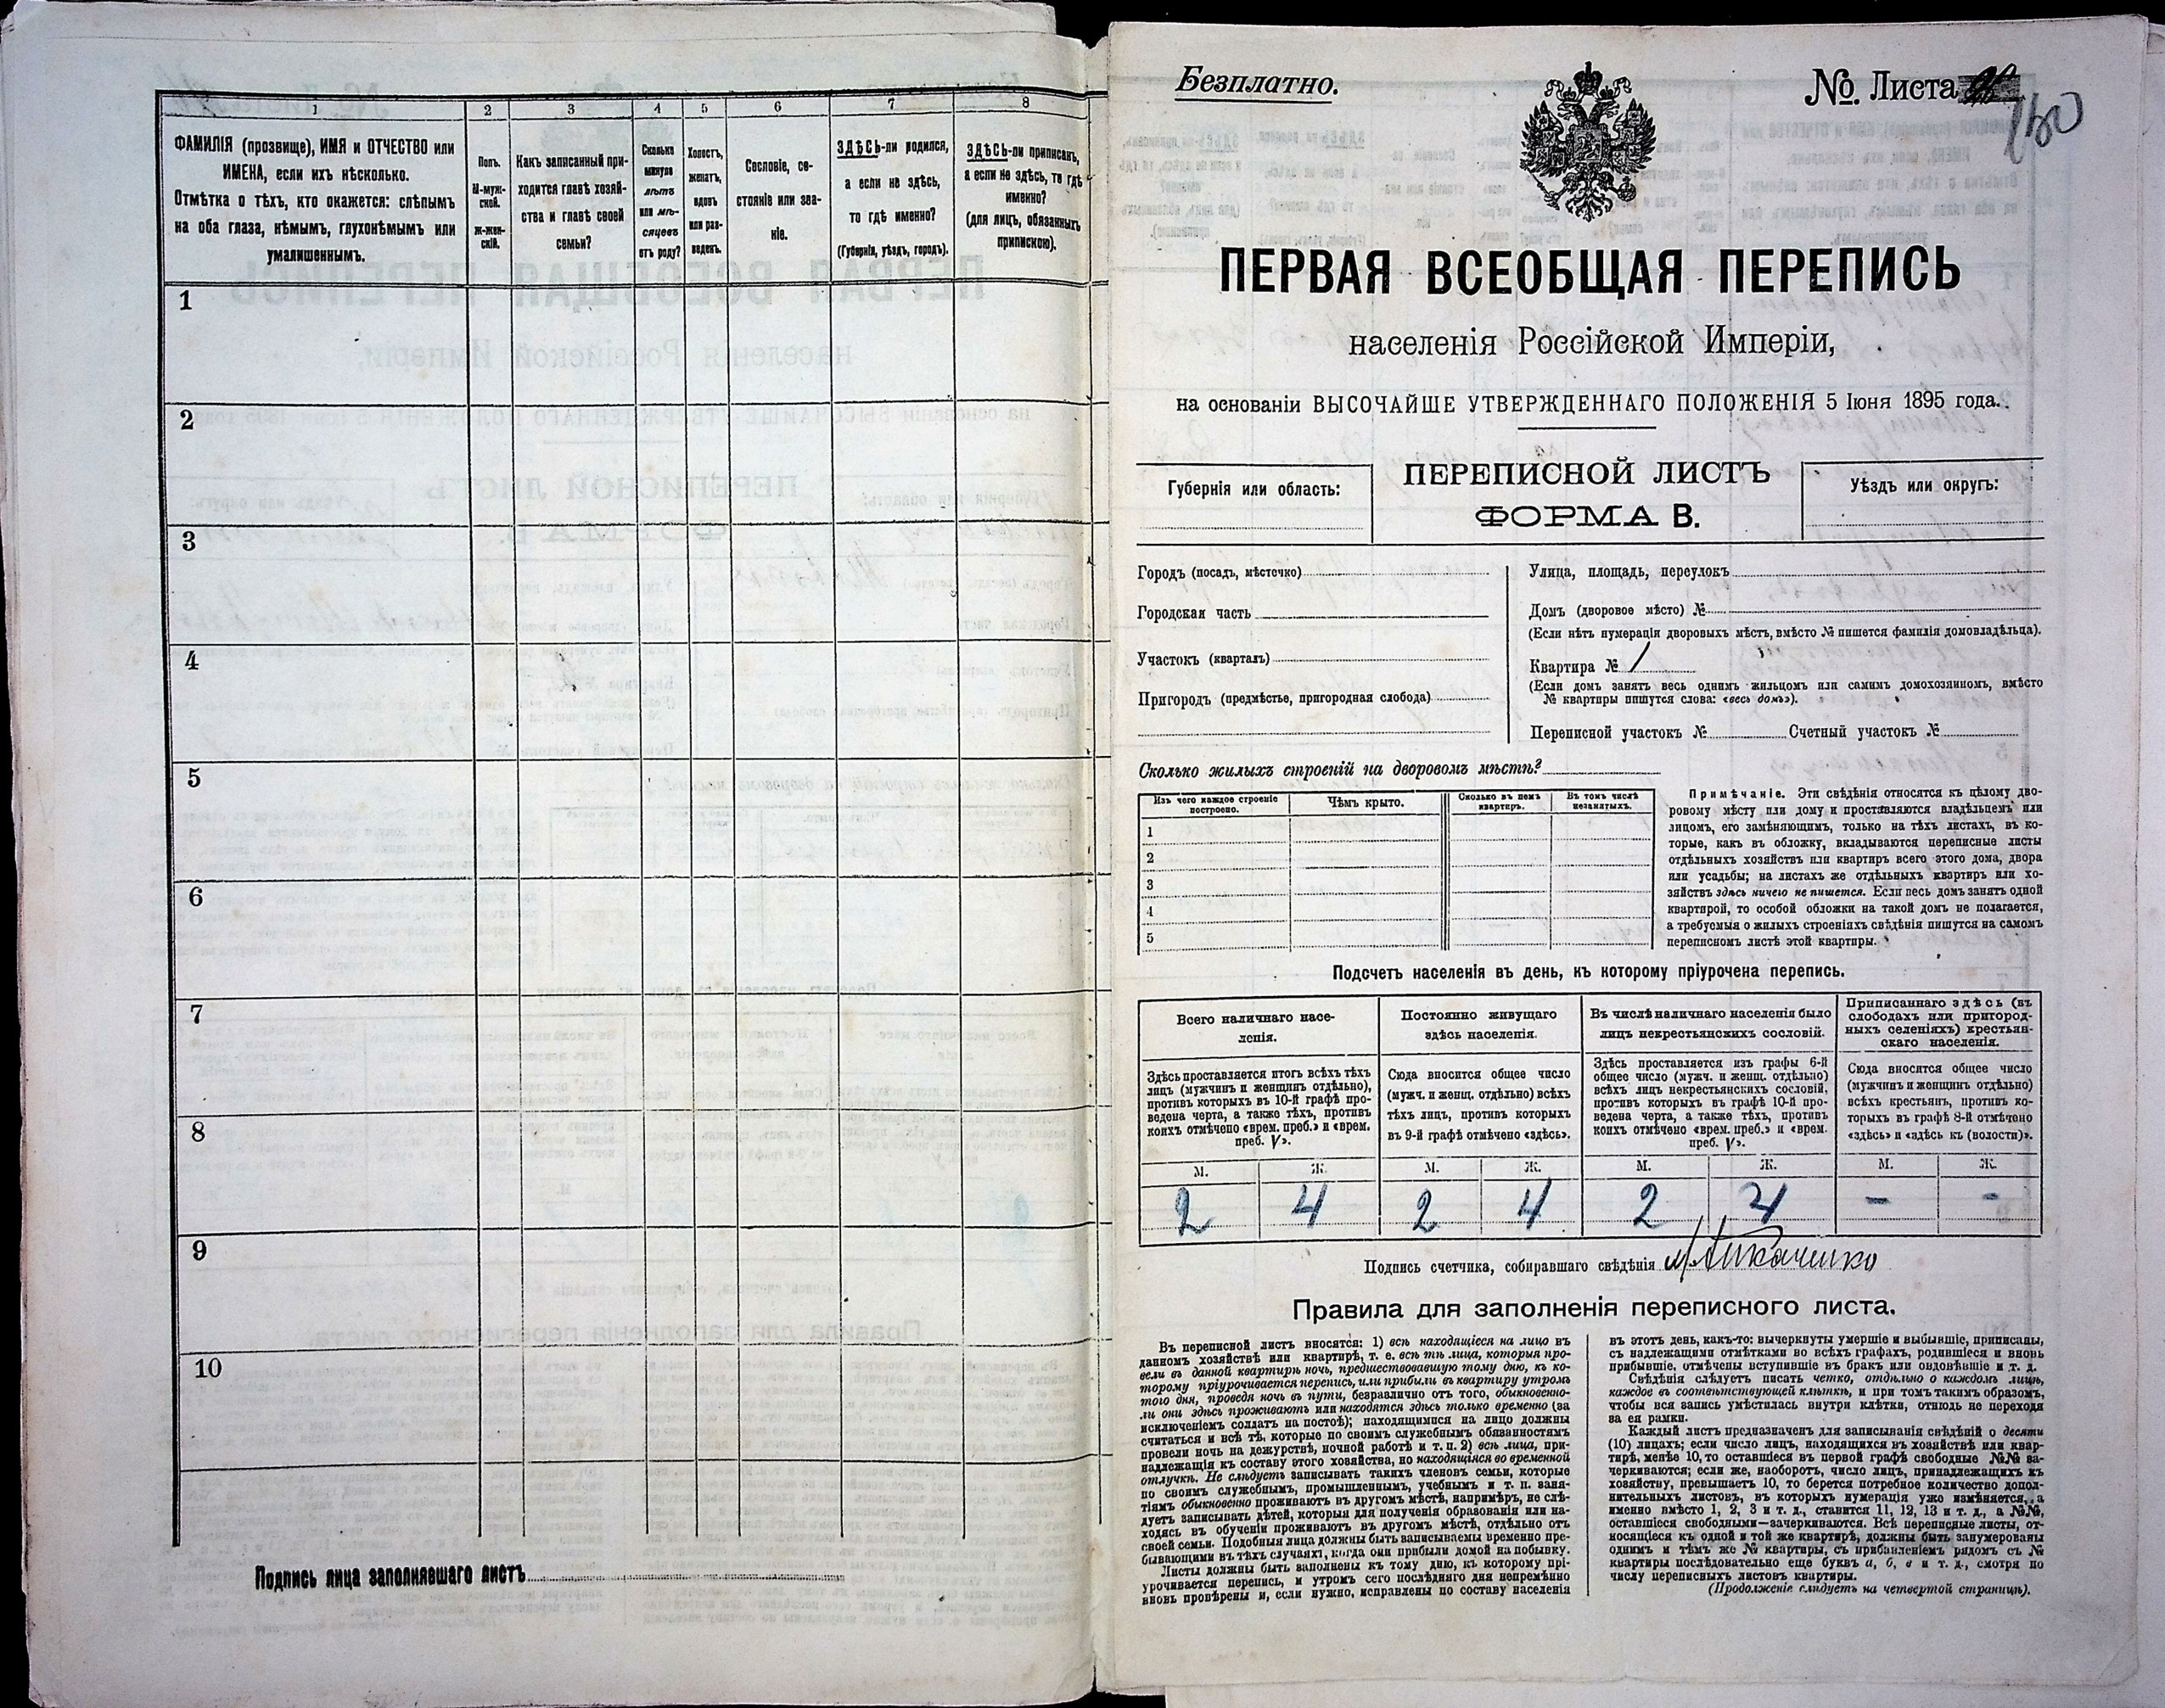 1 2 3 4 5 6 7 8
ФАМИЛІЯ (прозвище), ИМЯ и ОТЧЕСТВО или
ИМЕНА, если ихъ нѣсколько.
Отмѣтка о тѣхъ, кто окажется: слѣпымъ
на оба глаза, нѣмымъ, глухонѣмымъ или
умалишеннымъ.
Полъ.
М-муж-
ской.
Ж-жен-
скій.
Какъ записанный при-
ходится главѣ хозяй-
ства и главѣ своей
семьи?
Сколько
минуло
лѣтъ
или мѣ-
сяцевъ
отъ роду?
Холостъ,
женатъ,
вдовъ
или раз-
веденъ.
Сословіе, со-
стояніе или зва-
ніе.
ЗДѢСЬ-ли родился,
а если не здѣсь,
то гдѣ именно?
(Губернія, уѣздъ, городъ).
ЗДѢСЬ-ли приписанъ,
а если не здѣсь, то гдѣ
именно?
(для лицъ, обязанныхъ
припискою).
1
2
3
4
5
6
7
8
9
10
Подпись лица заполнявшаго листъ
Безплатно.
№ Листа
150
ПЕРВАЯ ВСЕОБЩАЯ ПЕРЕПИСЬ
населенія Россійской Имперіи,
на основаніи ВЫСОЧАЙШЕ УТВЕРЖДЕННАГО ПОЛОЖЕНІЯ 5 Іюня 1895 года.
Губернія или область:
ПЕРЕПИСНОЙ ЛИСТЪ
ФОРМА В.
Уѣздъ или округъ:
Городъ (посадъ, мѣстечко)
Городская часть
Участокъ (кварталъ)
Пригородъ (предмѣстье, пригородная слобода)
Улица, площадь, переулокъ
Домъ (дворовое мѣсто) №
(Если нѣтъ нумераціи дворовыхъ мѣстъ, вмѣсто № пишется фамилія домовладѣльца).
Квартира № 1
(Если домъ занятъ весь однимъ жильцомъ или самимъ домохозяиномъ, вмѣсто
№ квартиры пишутся слова: «весь домъ»).
Переписной участокъ № Счетный участокъ №
Сколько жилыхъ строеній на дворовомъ мѣстѣ?
Изъ чего каждое строеніе
построено.
Чѣмъ крыто.
Сколько въ немъ
квартиръ.
Въ томъ числѣ
незанятыхъ.
1
2
3
4
5
Примѣчаніе. Эти свѣдѣнія относятся къ цѣлому дво-
ровому мѣсту или дому и проставляются владѣльцемъ или
лицомъ, его замѣняющимъ, только на тѣхъ листахъ, въ ко-
торые, какъ въ обложку, вкладываются переписные листы
отдѣльныхъ хозяйствъ или квартиръ всего этого дома, двора
или усадьбы; на листахъ же отдѣльныхъ квартиръ или хо-
зяйствъ здѣсь ничего не пишется. Если весь домъ занятъ одной
квартирой, то особой обложки на такой домъ не полагается,
а требуемыя о жилыхъ строеніяхъ свѣдѣнія пишутся на самомъ
переписномъ листѣ этой квартиры.
Подсчетъ населенія въ день, къ которому пріурочена перепись.
Всего наличнаго насе-
ленія.
Здѣсь проставляется итогъ всѣхъ тѣхъ
лицъ (мужчинъ и женщинъ отдѣльно),
противъ которыхъ въ 10-й графѣ про-
ведена черта, а также тѣхъ, противъ
коихъ отмѣчено «врем. преб.» и «врем.
преб. V».
Постоянно живущаго
здѣсь населенія.
Сюда вносится общее число
(муж. и женщ. отдѣльно) всѣхъ
тѣхъ лицъ, противъ которыхъ
въ 9-й графѣ отмѣчено «здѣсь».
Въ числѣ наличнаго населенія было
лицъ некрестьянскихъ сословій.
Здѣсь проставляется изъ графы 6-й
общее число (мужч. и женщ. отдѣльно)
всѣхъ лицъ некрестьянскихъ сословій,
противъ которыхъ въ графѣ 10-й про-
ведена черта, а также тѣхъ, противъ
коихъ отмѣчено «врем. преб.» и «врем.
преб. V».
Приписаннаго здѣсь (въ
слободахъ или пригород-
ныхъ селеніяхъ) крестьян-
скаго населенія.
Сюда вносится общее число
(мужчинъ и женщинъ отдѣльно)
всѣхъ крестьянъ, противъ ко-
торыхъ въ графѣ 8-й отмѣчено
«здѣсь» и «здѣсь къ (волости)».
М. Ж. М. Ж. М. Ж. М. Ж.
2 4 2 4 2 4 - -
Подпись счетчика, собиравшаго свѣдѣнія
Правила для заполненія переписного листа.
Въ переписной листъ вносятся: 1) всѣ находящіеся на лицо въ
данномъ хозяйствѣ или квартирѣ, т. е. всѣ тѣ лица, которыя про-
вели въ данной квартирѣ ночь, предшествовавшую тому дню, къ ко-
торому пріурочивается перепись, или прибыли въ квартиру утромъ
того дня, проведя ночь въ пути, безразлично отъ того, обыкновенно-
ли они здѣсь проживаютъ или находятся здѣсь только временно (за
исключеніемъ солдатъ на постоѣ); находящимися на лицо должны
считаться и всѣ тѣ, которые по своимъ служебнымъ обязанностямъ
провели ночь на дежурствѣ, ночной работѣ и т. п. 2) всѣ лица, при-
надлежащія къ составу этого хозяйства, но находящіяся во временной
отлучкѣ. Не слѣдуетъ записывать такихъ членовъ семьи, которые
по своимъ служебнымъ, промышленнымъ, учебнымъ и т. п. заня-
тіямъ обыкновенно проживаютъ въ другомъ мѣстѣ, напримѣръ, не слѣ-
дуетъ записывать дѣтей, которыя для полученія образованія или на-
ходясь въ обученіи проживаютъ въ другомъ мѣстѣ, отдѣльно отъ
своей семьи. Подобныя лица должны быть записываемы временно пре-
бывающими въ тѣхъ случаяхъ, когда они прибыли домой на побывку.
Листы должны быть заполнены къ тому дню, къ которому прі-
урочивается перепись, и утромъ сего послѣдняго дня непремѣнно
вновь провѣрены и, если нужно, исправлены по составу населенія
въ этотъ день, какъ-то: вычеркнуты умершіе и выбывшіе, приписаны,
съ надлежащими отмѣтками во всѣхъ графахъ, родившіеся и вновь
прибывшіе, отмѣчены вступившіе въ бракъ или овдовѣвшіе и т. д.
Свѣдѣнія слѣдуетъ писать четко, отдѣльно о каждомъ лицѣ,
каждое въ соотвѣтствующей клѣткѣ, и при томъ такимъ образомъ,
чтобы вся запись умѣстилась внутри клѣтки, отнюдь не переходя
за ея рамки.
Каждый листъ предназначенъ для записыванія свѣдѣній о десяти
(10) лицахъ; если число лицъ, находящихся въ хозяйствѣ или квар-
тирѣ, менѣе 10, то оставшіеся въ первой графѣ свободные №№ за-
черкиваются; если же, наоборотъ, число лицъ, принадлежащихъ къ
хозяйству, превышаетъ 10, то берется потребное количество допол-
нительныхъ листовъ, въ которыхъ нумерація уже измѣняется, а
именно вмѣсто 1, 2, 3 и т. д., ставится 11, 12, 13 и т. д., а №№,
оставшіеся свободными—зачеркиваются. Всѣ переписные листы, от-
носящіеся къ одной и той же квартирѣ, должны быть занумерованы
однимъ и тѣмъ же № квартиры, съ прибавленіемъ рядомъ съ №
квартиры послѣдовательно еще буквъ а, б, в и т. д., смотря по
числу переписныхъ листовъ квартиры.
(Продолженіе слѣдуетъ на четвертой страницѣ).